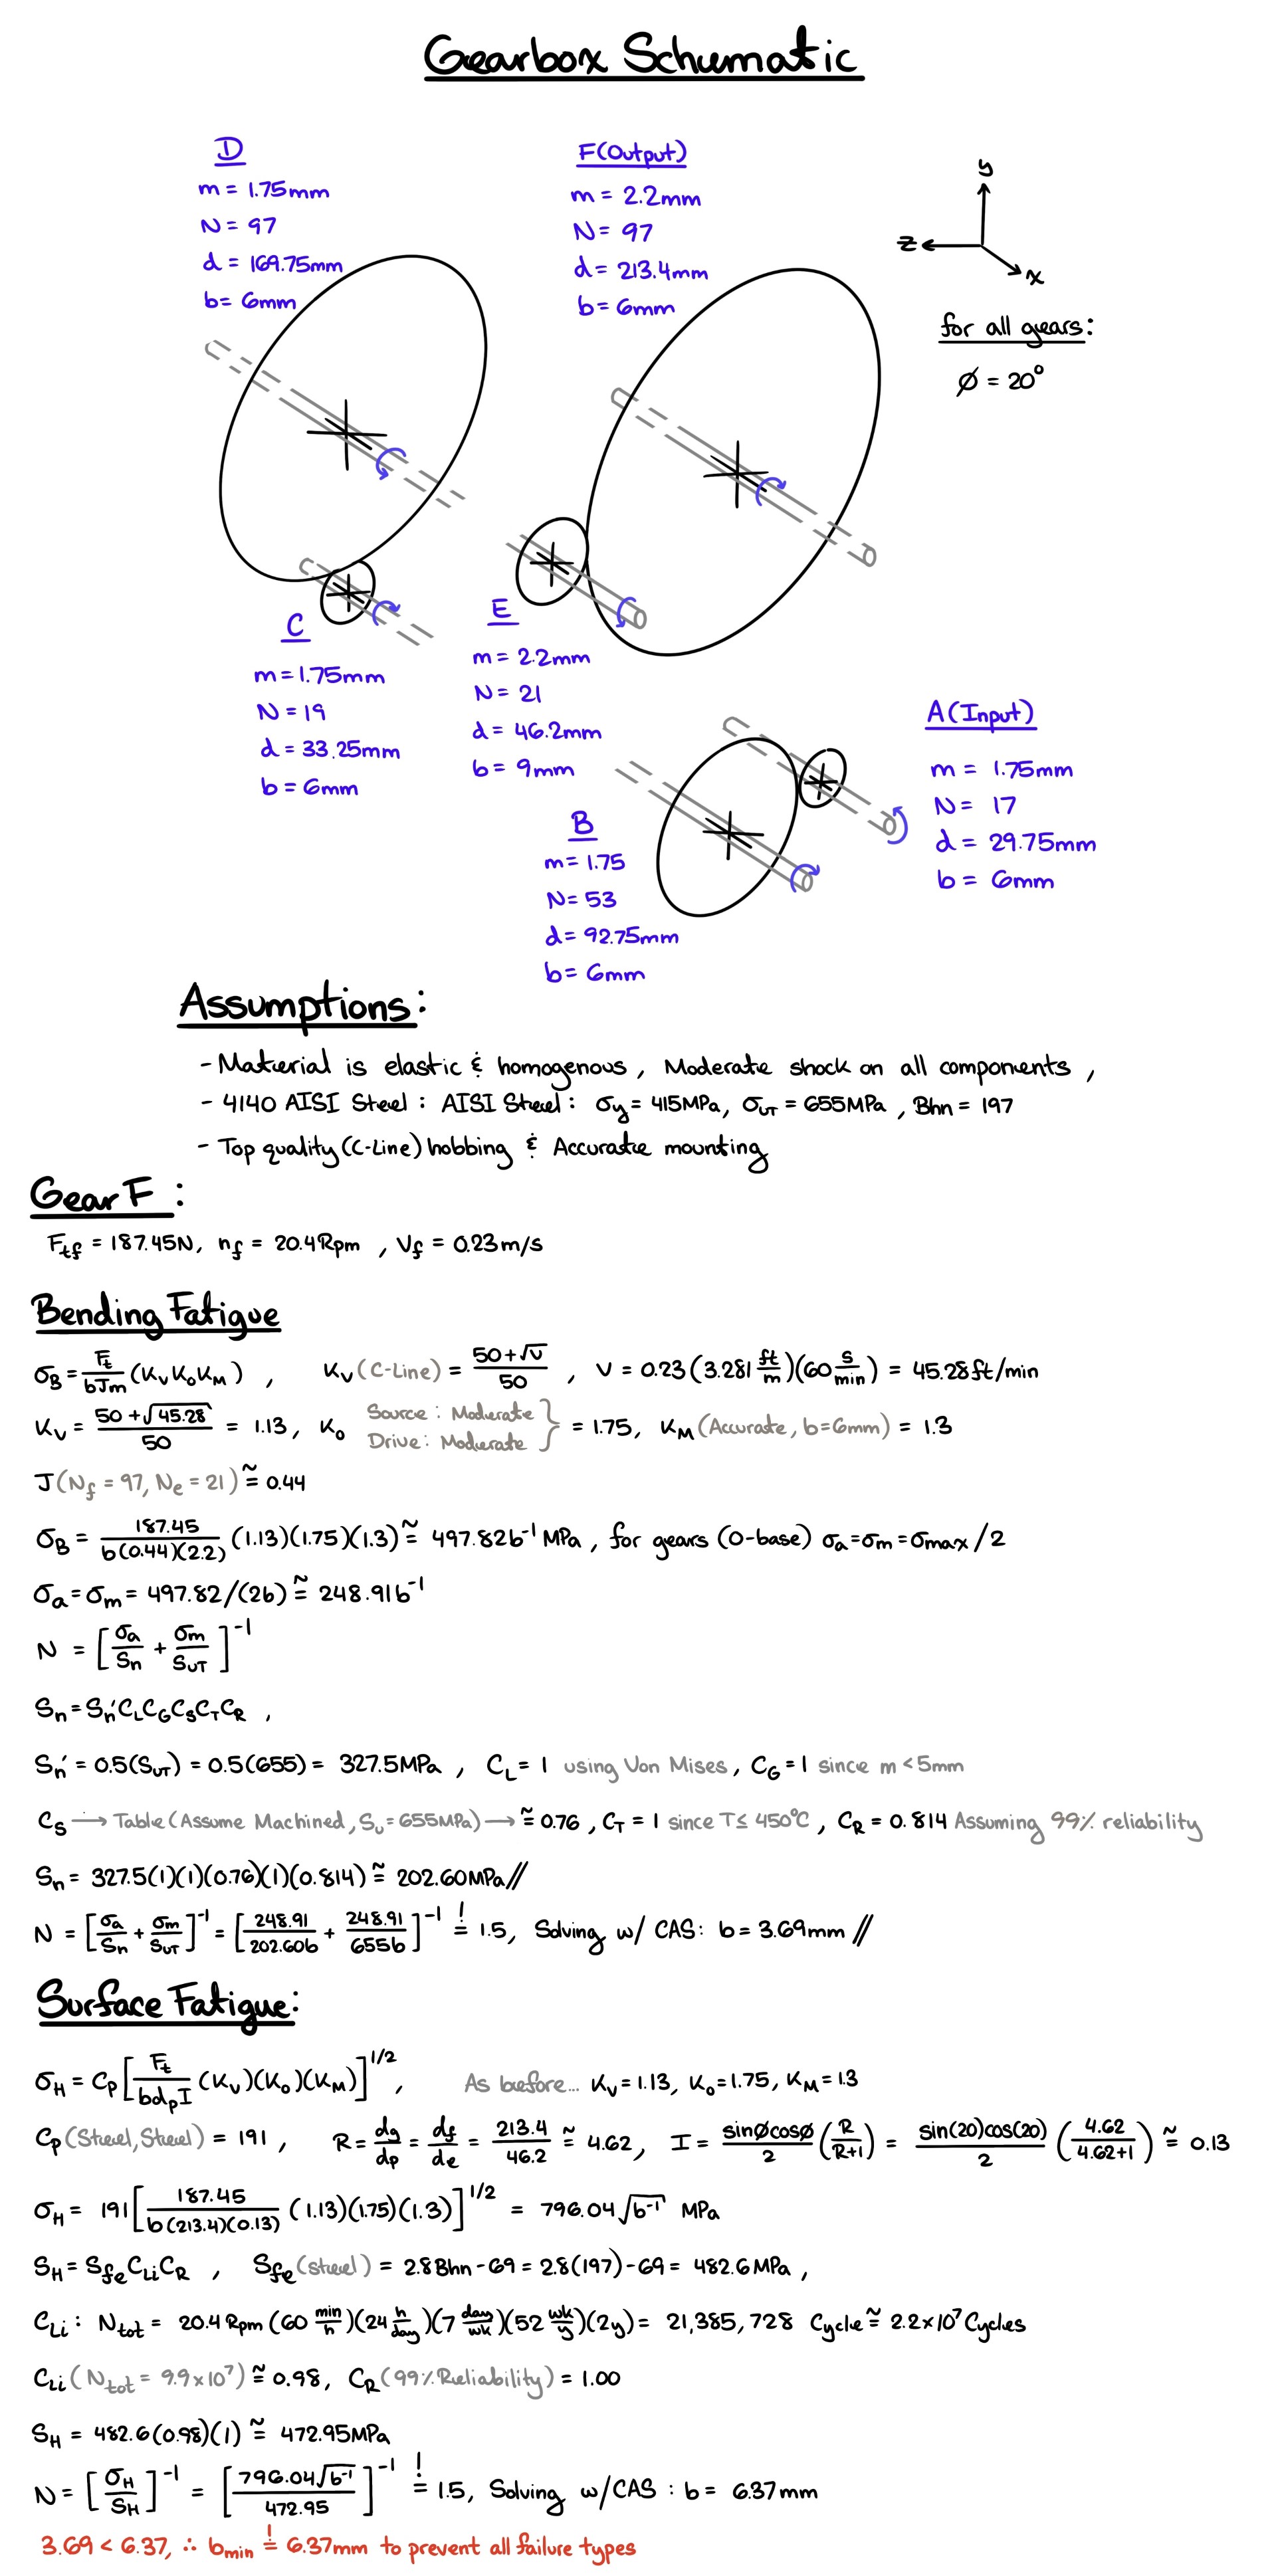 Gearbox Schematic
D
m = 1.75mm
N = 97
d = 169.75mm
b = 6mm
F(Output)
m = 2.2mm
N = 97
d = 213.4mm
b = 6mm
y
z
x
for all gears:
Ø = 20°
C
m = 1.75mm
N = 19
d = 33.25mm
b = 6mm
E
m = 2.2mm
N = 21
d = 46.2mm
b = 9mm
A(Input)
m = 1.75mm
N = 17
d = 29.75mm
b = 6mm
B
m = 1.75
N = 53
d = 92.75mm
b = 6mm
Assumptions:
- Material is elastic & homogenous, Moderate shock on all components,
- 4140 AISI Steel: AISI Steel: σy = 415MPa, σUT = 655MPa, Bhn = 197
- Top quality (C-Line) hobbing & Accurate mounting
Gear F:
Ftf = 187.45N, nf = 20.4Rpm, Vf = 0.23m/s
Bending Fatigue
σB = Ft/(bJm) (KvKoKM), Kv(C-Line) = (50+√V)/50, V = 0.23(3.281 ft/m)(60 s/min) = 45.28ft/min
Kv = (50+√45.28)/50 = 1.13, Ko Source: Moderate Drive: Moderate } = 1.75, KM(Accurate, b=6mm) = 1.3
J(Nf = 97, Ne = 21) ≅ 0.44
σB = 187.45/(b(0.44)(2.2)) (1.13)(1.75)(1.3) ≅ 497.82b⁻¹ MPa, for gears (0-base) σa=σm=σmax/2
σa=σm= 497.82/(2b) ≅ 248.91b⁻¹
N = [σa/Sn + σm/SUT]⁻¹
Sn = Sn'CLCGCSCTCR,
Sn' = 0.5(SUT) = 0.5(655) = 327.5MPa, CL = 1 using Von Mises, CG = 1 since m<5mm
CS → Table (Assume Machined, Su=655MPa) → ≅ 0.76, CT = 1 since T≤ 450°C, CR = 0.814 Assuming 99% reliability
Sn = 327.5(1)(1)(0.76)(1)(0.814) ≅ 202.60MPa//
N = [σa/Sn + σm/SUT]⁻¹ = [248.91/202.60b + 248.91/655b]⁻¹ =! 1.5, Solving w/ CAS: b = 3.69mm //
Surface Fatigue:
σH = Cp[Ft/(bdpI) (Kv)(Ko)(KM)]^1/2, As before... Kv = 1.13, Ko=1.75, KM=1.3
Cp(Steel, Steel) = 191, R = dg/dp = df/de = 213.4/46.2 ≅ 4.62, I = sinØcosØ/2 (R/R+1) = sin(20)cos(20)/2 (4.62/4.62+1) ≅ 0.13
σH = 191[187.45/(b(213.4)(0.13)) (1.13)(1.75)(1.3)]^1/2 = 796.04√b⁻¹ MPa
SH = SfeCLiCR, Sfe(steel) = 2.8Bhn-69 = 2.8(197)-69 = 482.6MPa,
CLi: Ntot = 20.4Rpm (60 min/h)(24 h/day)(7 day/wk)(52 wk/y)(2y) = 21,385,728 Cycle ≅ 2.2x10⁷ Cycles
CLi(Ntot = 9.9x10⁷) ≅ 0.98, CR(99% Reliability) = 1.00
SH = 482.6(0.98)(1) ≅ 472.95MPa
N = [σH/SH]⁻¹ = [796.04√b⁻¹/472.95]⁻¹ =! 1.5, Solving w/CAS: b = 6.37mm
3.69 < 6.37, ∴ bmin =! 6.37mm to prevent all failure types